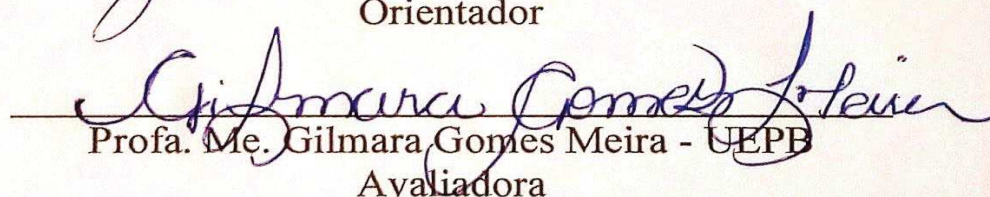 Orientador
Gilmara Gomes Meira
Profa. Me. Gilmara Gomes Meira - UEPB
Avaliadora